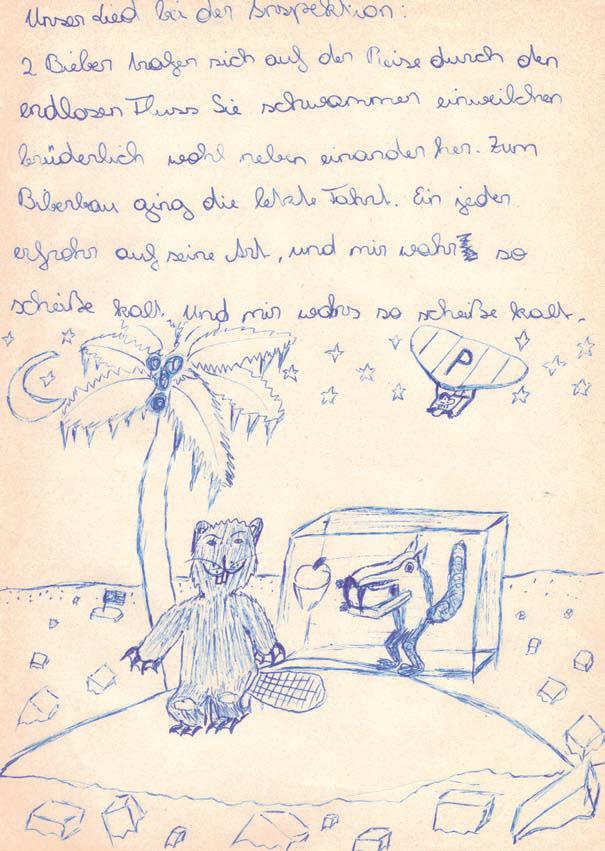 Unser Lied bei der Inspektion:
2 Bieber trafen sich auf der Reise durch den
endlosen Fluss Sie schwammen einweilchen
brüderlich wohl neben einander her. Zum
Biberbau ging die letzte Fahrt. Ein jeder
erfrohr auf seine Art, und mir wahr so
scheiße kalt. Und mir wahrs so scheiße kalt.
P